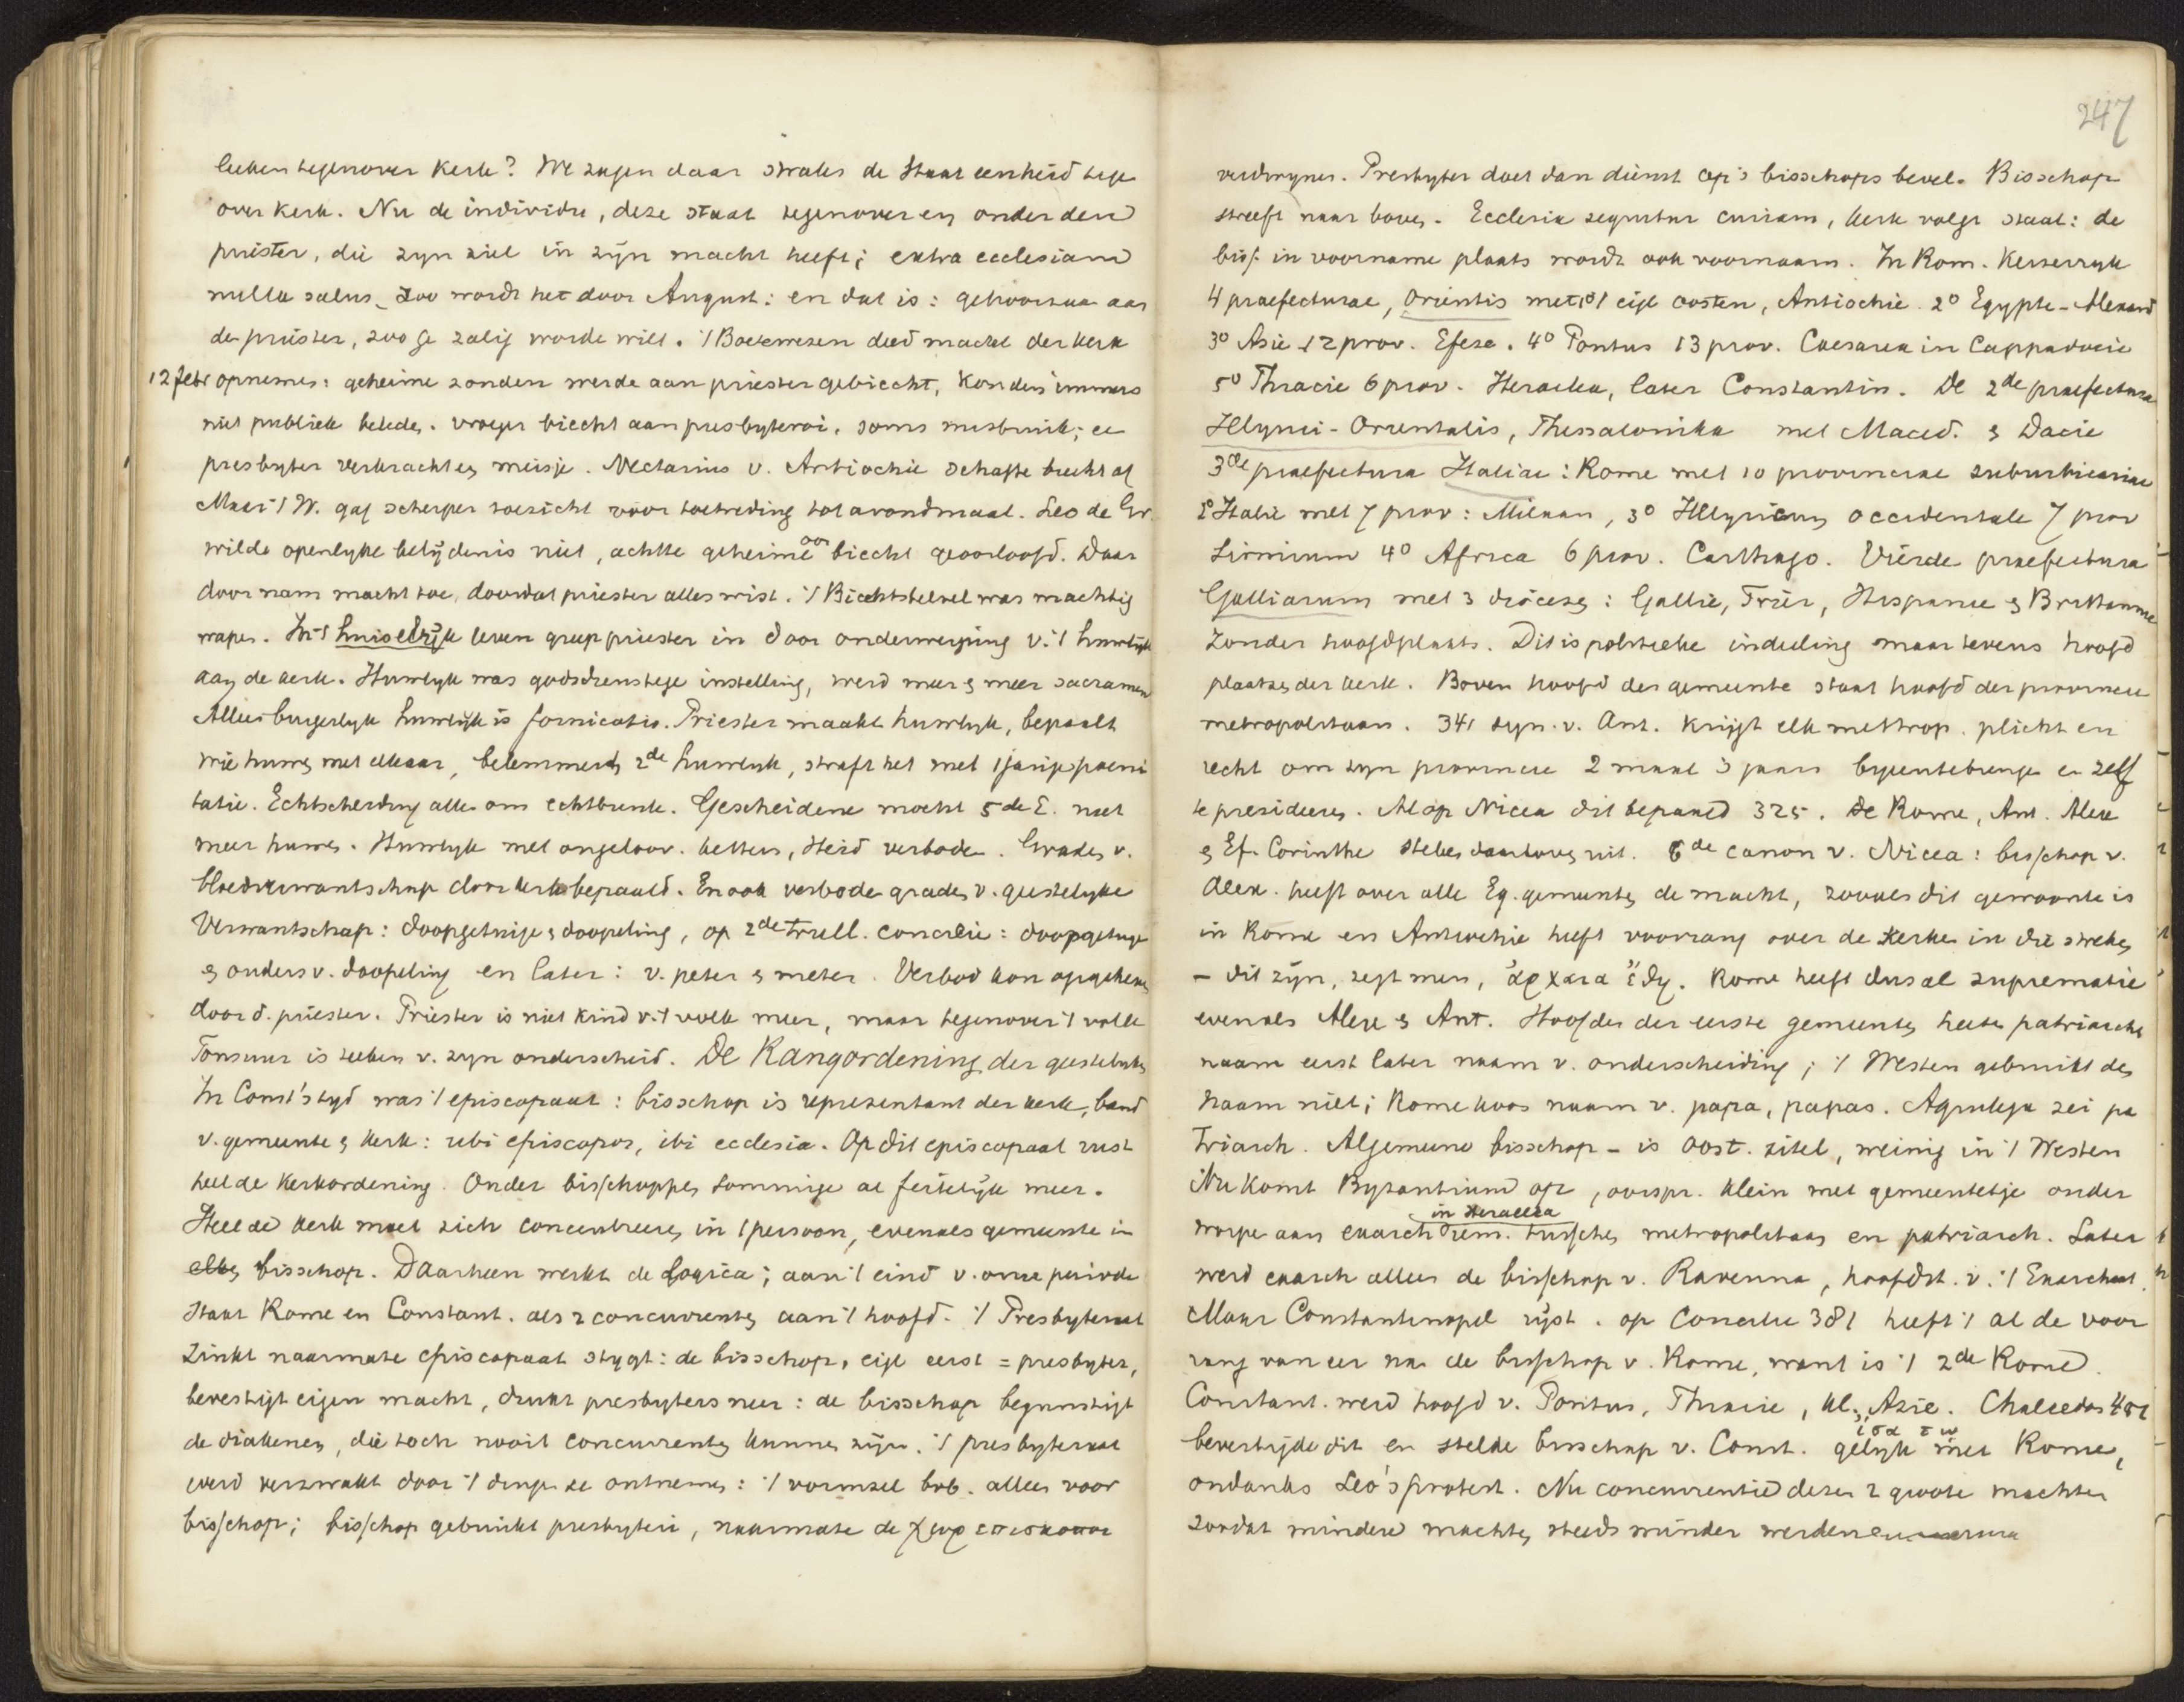 247
leeken tegenover kerk? We zagen daar straks de staat eenheid tege
over kerk. Nu de individu, deze staat tegenover en onder den
priester, die zyn ziel in zyn macht heeft; extra ecclesiam
nulla salus, zoo wordt het door August: en dat is: gehoorzaa aan
de priester, zoo ge zalig worde wilt. 't Boetewezen deed macht der kerk
12 febr opnemen: geheime zonden werde aan priester gebiecht, konden immers
niet publiek belede. vroeger biecht aan presbyteroi, soms misbruik; ee
presbyter verkracht en meisje. Nectarius v. Antiochie schafte biecht af
Maar i/t W. gaf scherper toezicht voor toetreding tot avondmaal. Leo de Gr.
wilde openlyke belydenis niet, achtte geheime oor biecht geoorloofd. Daar
door nam macht toe, doordat priester alles wist. 't Biechtstelsel was machtig
wapen. In 't huiselyk leven greep priester in door onderwerping v. 't huwelyk
aan de kerk. Huwelyk was godsdienstige instelling, werd meer & meer sacrament
Alleen burgerlyk huwelyk is fornicatio. Priester maakt huwelyk, bepaalt
wie huwen met elkaar, belemmerd 2de huwelyk, straft het met 1 jarige poeni
tatie. Echtscheiding alleen om echtbreuk. Gescheidene mocht 5de E. niet
meer huwen. Huwelyk met ongeloov. ketters, Heid verboden. Graden v.
bloedverwantschap door kerk bepaald. En ook verbode graden v. geestelyke
Verwantschap: doopgetuige & doopeling, op 2de trull. concilie: doopgetuige
& ouders v. doopeling en later: v. peter & meter. Verbod kon opgeheven
door d. priester. Priester is niet kind v. 't volk meer, maar tegenover 't volk
Tonsuur is teeken v. zyn onderscheid. De Rangordening der geestelyken
In Const's tyd was 't episcopaat: bisschop is representant der kerk, band
v. gemeente & kerk: ubi episcopos, ibi ecclesia. Op dit episcopaat rust
heel de kerkordening. Onder bisschoppen sommige al feitelyk meer.
Heel de kerk moet zich concentreeren in 1 persoon, evenals gemeente in
elken bisschop. Daarheen werkt de Logica; aan 't eind v. onze periode
staat Rome en Constant. als 2 concurrenten aan 't hoofd. 't Presbyteraat
Zinkt naarmate episcopaat stygt: de bisschop, eigl eerst = presbyter,
bevestigt eigen macht, drukt presbyters neer: de bisschop begunstigt
de diakenen, die toch nooit concurrenten kunnen zijn. 't presbyteraat
werd verzwakt door 't dingen te ontnemen: 't vormsel bvb. alleen voor
bisschop; bisschop gebruikt presbyteri, naarmate de χωρεπισκοποι
verdwynen. Presbyter doet dan dienst op 's bisschops bevel. Bisschop
streeft naar boven. Ecclesia sequitur curiam, kerk volgt staat: de
bis. in voorname plaats wordt ook voornaam. In Rom. Keizerryk
4 praefecturae, Orientis met 1o 't eigl oosten, Antiochie. 2o Egypte - Alexand
3o Asie 12 prov. Efeze. 4o Pontus 13 prov. Caesarea in Cappadocie
5o Thracie 6 prov. Heraclea, later Constantin. De 2de praefectura
Illyrici-Orientalis, Thessalonika met Maced. & Dacie
3de praefectura Italiae: Rome met 10 provinciae suburbicariae
2o Italie met 7 prov: Milaan, 3o Illyricum occidentale 7 prov
Sirmium 4o Africa 6 prov. Carthago. Vierde praefectura
Galliarum met 3 diocese: Gallie, Trier, Hispanie & Brittannie
Zonder hoofdplaats. Dit is politieke indeeling maar tevens hoofd
plaatsen der kerk. Boven hoofd der gemeente staat hoofd der provincie
metropolitaan. 341 syn. v. Ant. krijgt elk metrop. plicht en
recht om zyn provincie 2 maal 's jaars byeentebrengen en zelf
te presideeren. Al op Nicea dit bepaald 325. De Rome, Ant. Alex
& Ef. Corinthe steken daarboven uit. 6de canon v. Nicea: bisschop v.
Alex. heeft over alle Eg. gemeenten de macht, zooals dit gewoonte is
in Rome en Antiochie heeft voorrang over de kerken in die streken
- dit zyn, zegt men, ἀρχαια ἔθη. Rome heeft dus al suprematie
evenals Alex & Ant. Hoofden der eerste gemeenten heeten patriarchen
naam eerst later naam v. onderscheiding; 't Westen gebruikt den
naam niet; Rome koos naam v. papa, papas. Aquileja zei pa
triarch. Algemeene bisschop - is oost. titel, weinig in 't Westen
Nu komt Byzantium op, oorspr. klein met gemeentetje onder
worpe aan exarch in Heraclea tusschen metropolitaan en patriarch. Later
werd exarch alleen de bisschop v. Ravenna, hoofdst. v. 't Exarchaat.
Maar Constantinopel ryst. op Concilie 381 heeft 't al de voor
rang van eer na de bisschop v. Rome, want is 't 2de Rome.
Constant. werd hoofd v. Pontus, Thracie, kl. Azie. Chalcedon 451
bevestigde dit en stelde bisschop v. Const. gelyk met Rome,
ondanks Leo's protest. Nu concurrentie dezer 2 groote machten
zoodat mindere machten steeds minder werden